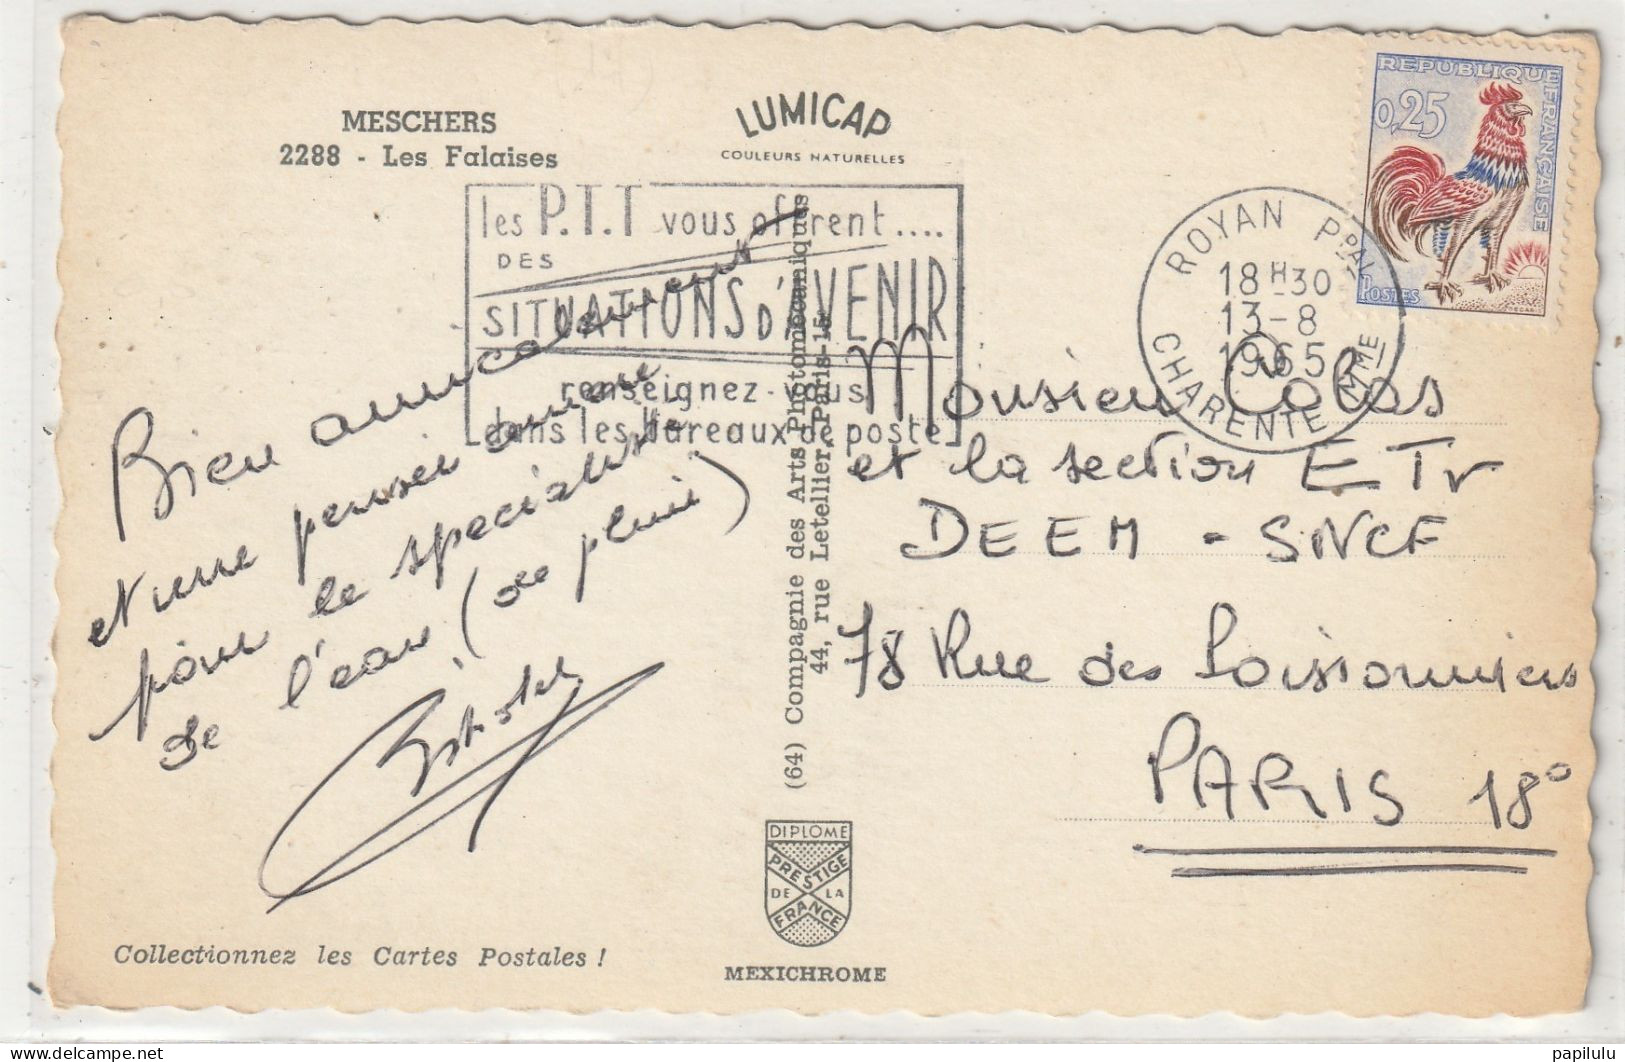 MESCHERS
2288 - Les Falaises
LUMICAP
COULEURS NATURELLES
REPUBLIQUE FRANÇAISE
0,25
POSTES
DECARIS
les P.T.T vous offrent....
DES
SITUATIONS D'AVENIR
renseignez-vous
dans les bureaux de poste
ROYAN PPAL
18H30
13-8
1965
CHARENTE MME
Bien amicalement
et une pensée émue
pour le spécialiste
de l'eau (de pluie)
Monsieur Colas
et la section ETV
DEEM - SNCF
78 Rue des Poissonniers
PARIS 18°
(64) Compagnie des Arts Photomécaniques
44, rue Letellier, Paris-15e
DIPLOME
PRESTIGE
DE LA
FRANCE
MEXICHROME
Collectionnez les Cartes Postales !
papilulu